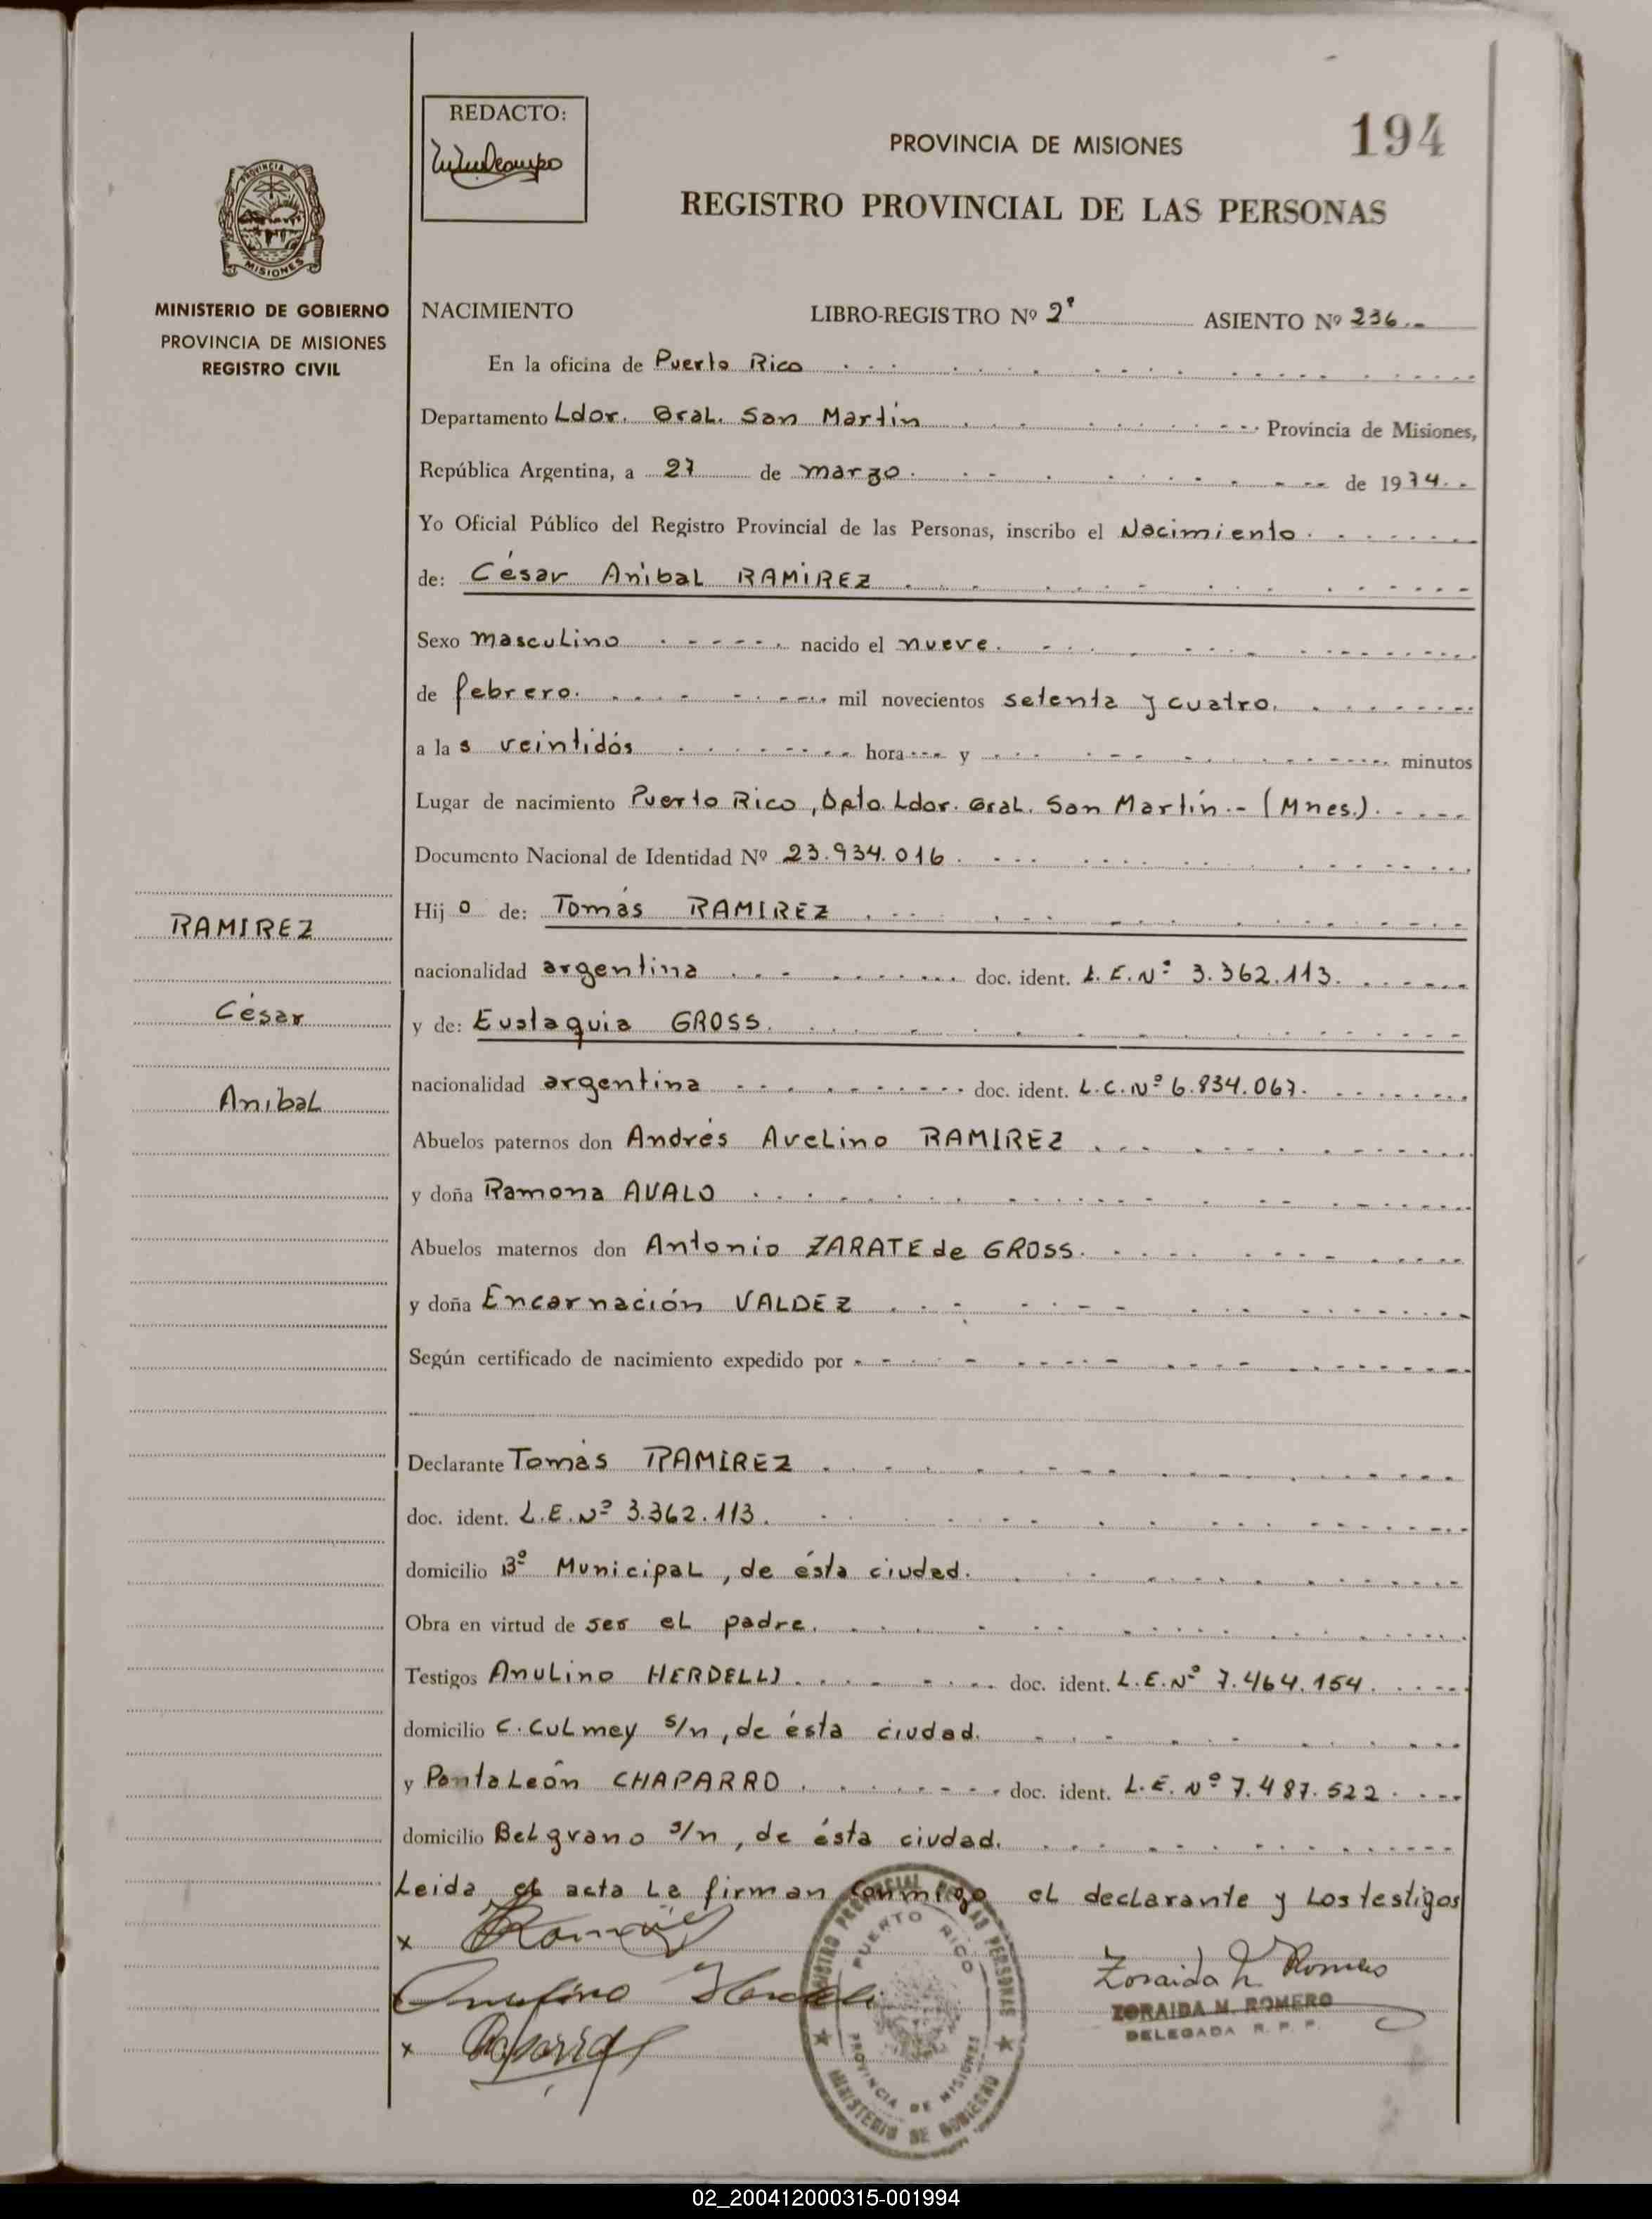 REDACTO:
PROVINCIA DE MISIONES
194
REGISTRO PROVINCIAL DE LAS PERSONAS
PROVINCIA DE
MISIONES
MINISTERIO DE GOBIERNO
PROVINCIA DE MISIONES
REGISTRO CIVIL
NACIMIENTO LIBRO-REGISTRO Nº 2º ASIENTO Nº 236.-
En la oficina de Puerto Rico
Departamento Ldor. Gral. San Martín Provincia de Misiones,
República Argentina, a 27 de marzo de 1974.-
Yo Oficial Público del Registro Provincial de las Personas, inscribo el Nacimiento
de: César Aníbal RAMÍREZ
Sexo masculino nacido el nueve
de febrero. mil novecientos setenta y cuatro.
a las veintidós hora y minutos
Lugar de nacimiento Puerto Rico, Dpto. Ldor. Gral. San Martín.- (Mnes.).
Documento Nacional de Identidad Nº 23.934.016
RAMIREZ
César
Anibal
Hijo de: Tomás RAMIREZ
nacionalidad argentina doc. ident. L.E.Nº 3.362.113.
y de: Eustaquia GROSS.
nacionalidad argentina doc. ident. L.C.Nº 6.834.067.
Abuelos paternos don Andrés Avelino RAMIREZ
y doña Ramona AVALO
Abuelos maternos don Antonio ZARATE de GROSS.
y doña Encarnación VALDEZ
Según certificado de nacimiento expedido por
Declarante Tomás RAMÍREZ
doc. ident. L.E.Nº 3.362.113.
domicilio Bº Municipal, de ésta ciudad.
Obra en virtud de ser el padre.
Testigos Anulino HERDELLI doc. ident. L.E.Nº 7.464.154.
domicilio C. Culmey s/n, de ésta ciudad.
y Pantaleón CHAPARRO doc. ident. L.E. Nº 7.487.522
domicilio Belgrano s/n, de ésta ciudad.
Leida el acta la firman conmigo el declarante y los testigos
x Ramirez
Anulino Herdeli
x
REGISTRO PROVINCIAL DE LAS PERSONAS
PUERTO RICO
PROVINCIA DE MISIONES
MINISTERIO DE GOBIERNO
Zoraida M. Romero
ZORAIDA M. ROMERO
DELEGADA R. P. P.
02_200412000315-001994